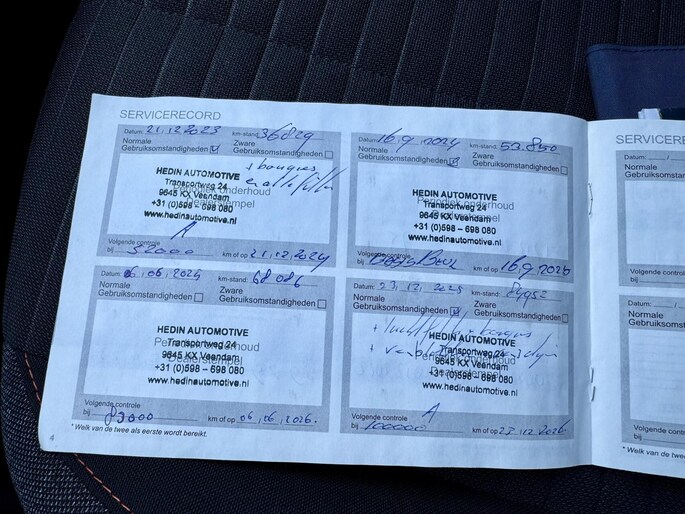 SERVICERECORD
Datum: 21.12.2023 km-stand: 36829
Normale Gebruiksomstandigheden Zware Gebruiksomstandigheden
+ bougies
HEDIN AUTOMOTIVE
Periodiek onderhoud
Transportweg 24
9645 KX Veendam
Dealerstempel
+31 (0)598 – 698 080
www.hedinautomotive.nl
A
Volgende controle
bij 52000 km of op 21.12.2024
Datum: 16.9.2024 km-stand: 53.850
Normale Gebruiksomstandigheden Zware Gebruiksomstandigheden
HEDIN AUTOMOTIVE
Periodiek onderhoud
Transportweg 24
9645 KX Veendam
Dealerstempel
+31 (0)598 – 698 080
www.hedinautomotive.nl
Volgende controle
bij km of op 16.9.2026
Datum: 06.06.2025 km-stand: 68.086
Normale Gebruiksomstandigheden Zware Gebruiksomstandigheden
HEDIN AUTOMOTIVE
Periodiek onderhoud
Transportweg 24
9645 KX Veendam
Dealerstempel
+31 (0)598 – 698 080
www.hedinautomotive.nl
Volgende controle
bij 83000 km of op 06.06.2026.
Datum: 23.12.2025 km-stand:
Normale Gebruiksomstandigheden Zware Gebruiksomstandigheden
+ luchtfilter + bougies
HEDIN AUTOMOTIVE
Periodiek onderhoud
Transportweg 24
9645 KX Veendam
Dealerstempel
+31 (0)598 – 698 080
www.hedinautomotive.nl
A
Volgende controle
bij 100000 km of op 23.12.2026
* Welk van de twee als eerste wordt bereikt.
4
Datum:
Normale
Volgende
bij
Datum:
Normale
Volgende
bij
* Welk van de